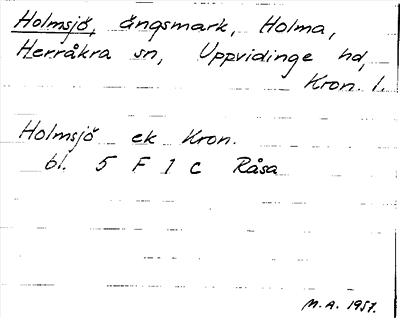 Holmsjö, ängsmark, Holma,
Herråkra sn, Uppvidinge hd,
Kron. l.
Holmsjö ek Kron.
bl. 5 F 1 c Råsa
M.A. 1957.